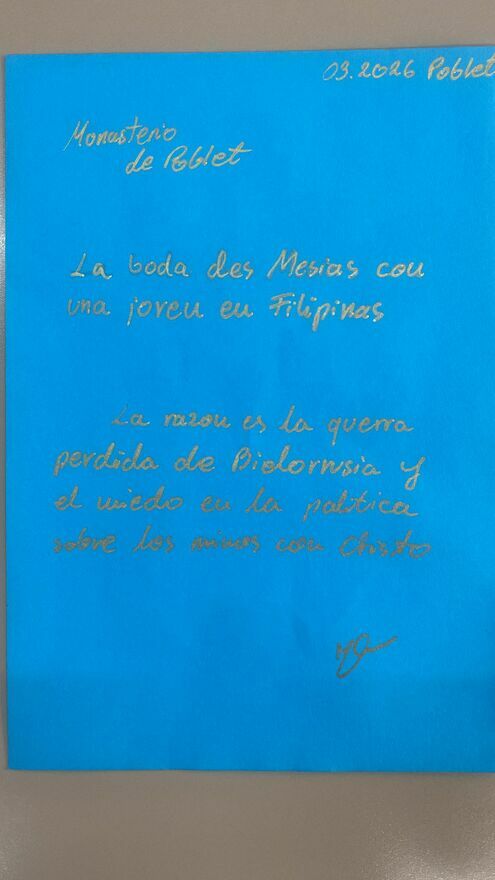 03.2026 Poblet
Monasterio
de Poblet
La boda des Mesias con
una joven en Filipinas
La razon es la querra
perdida de Bielorrusia y
el miedo en la politica
sobre los ninos con Christo